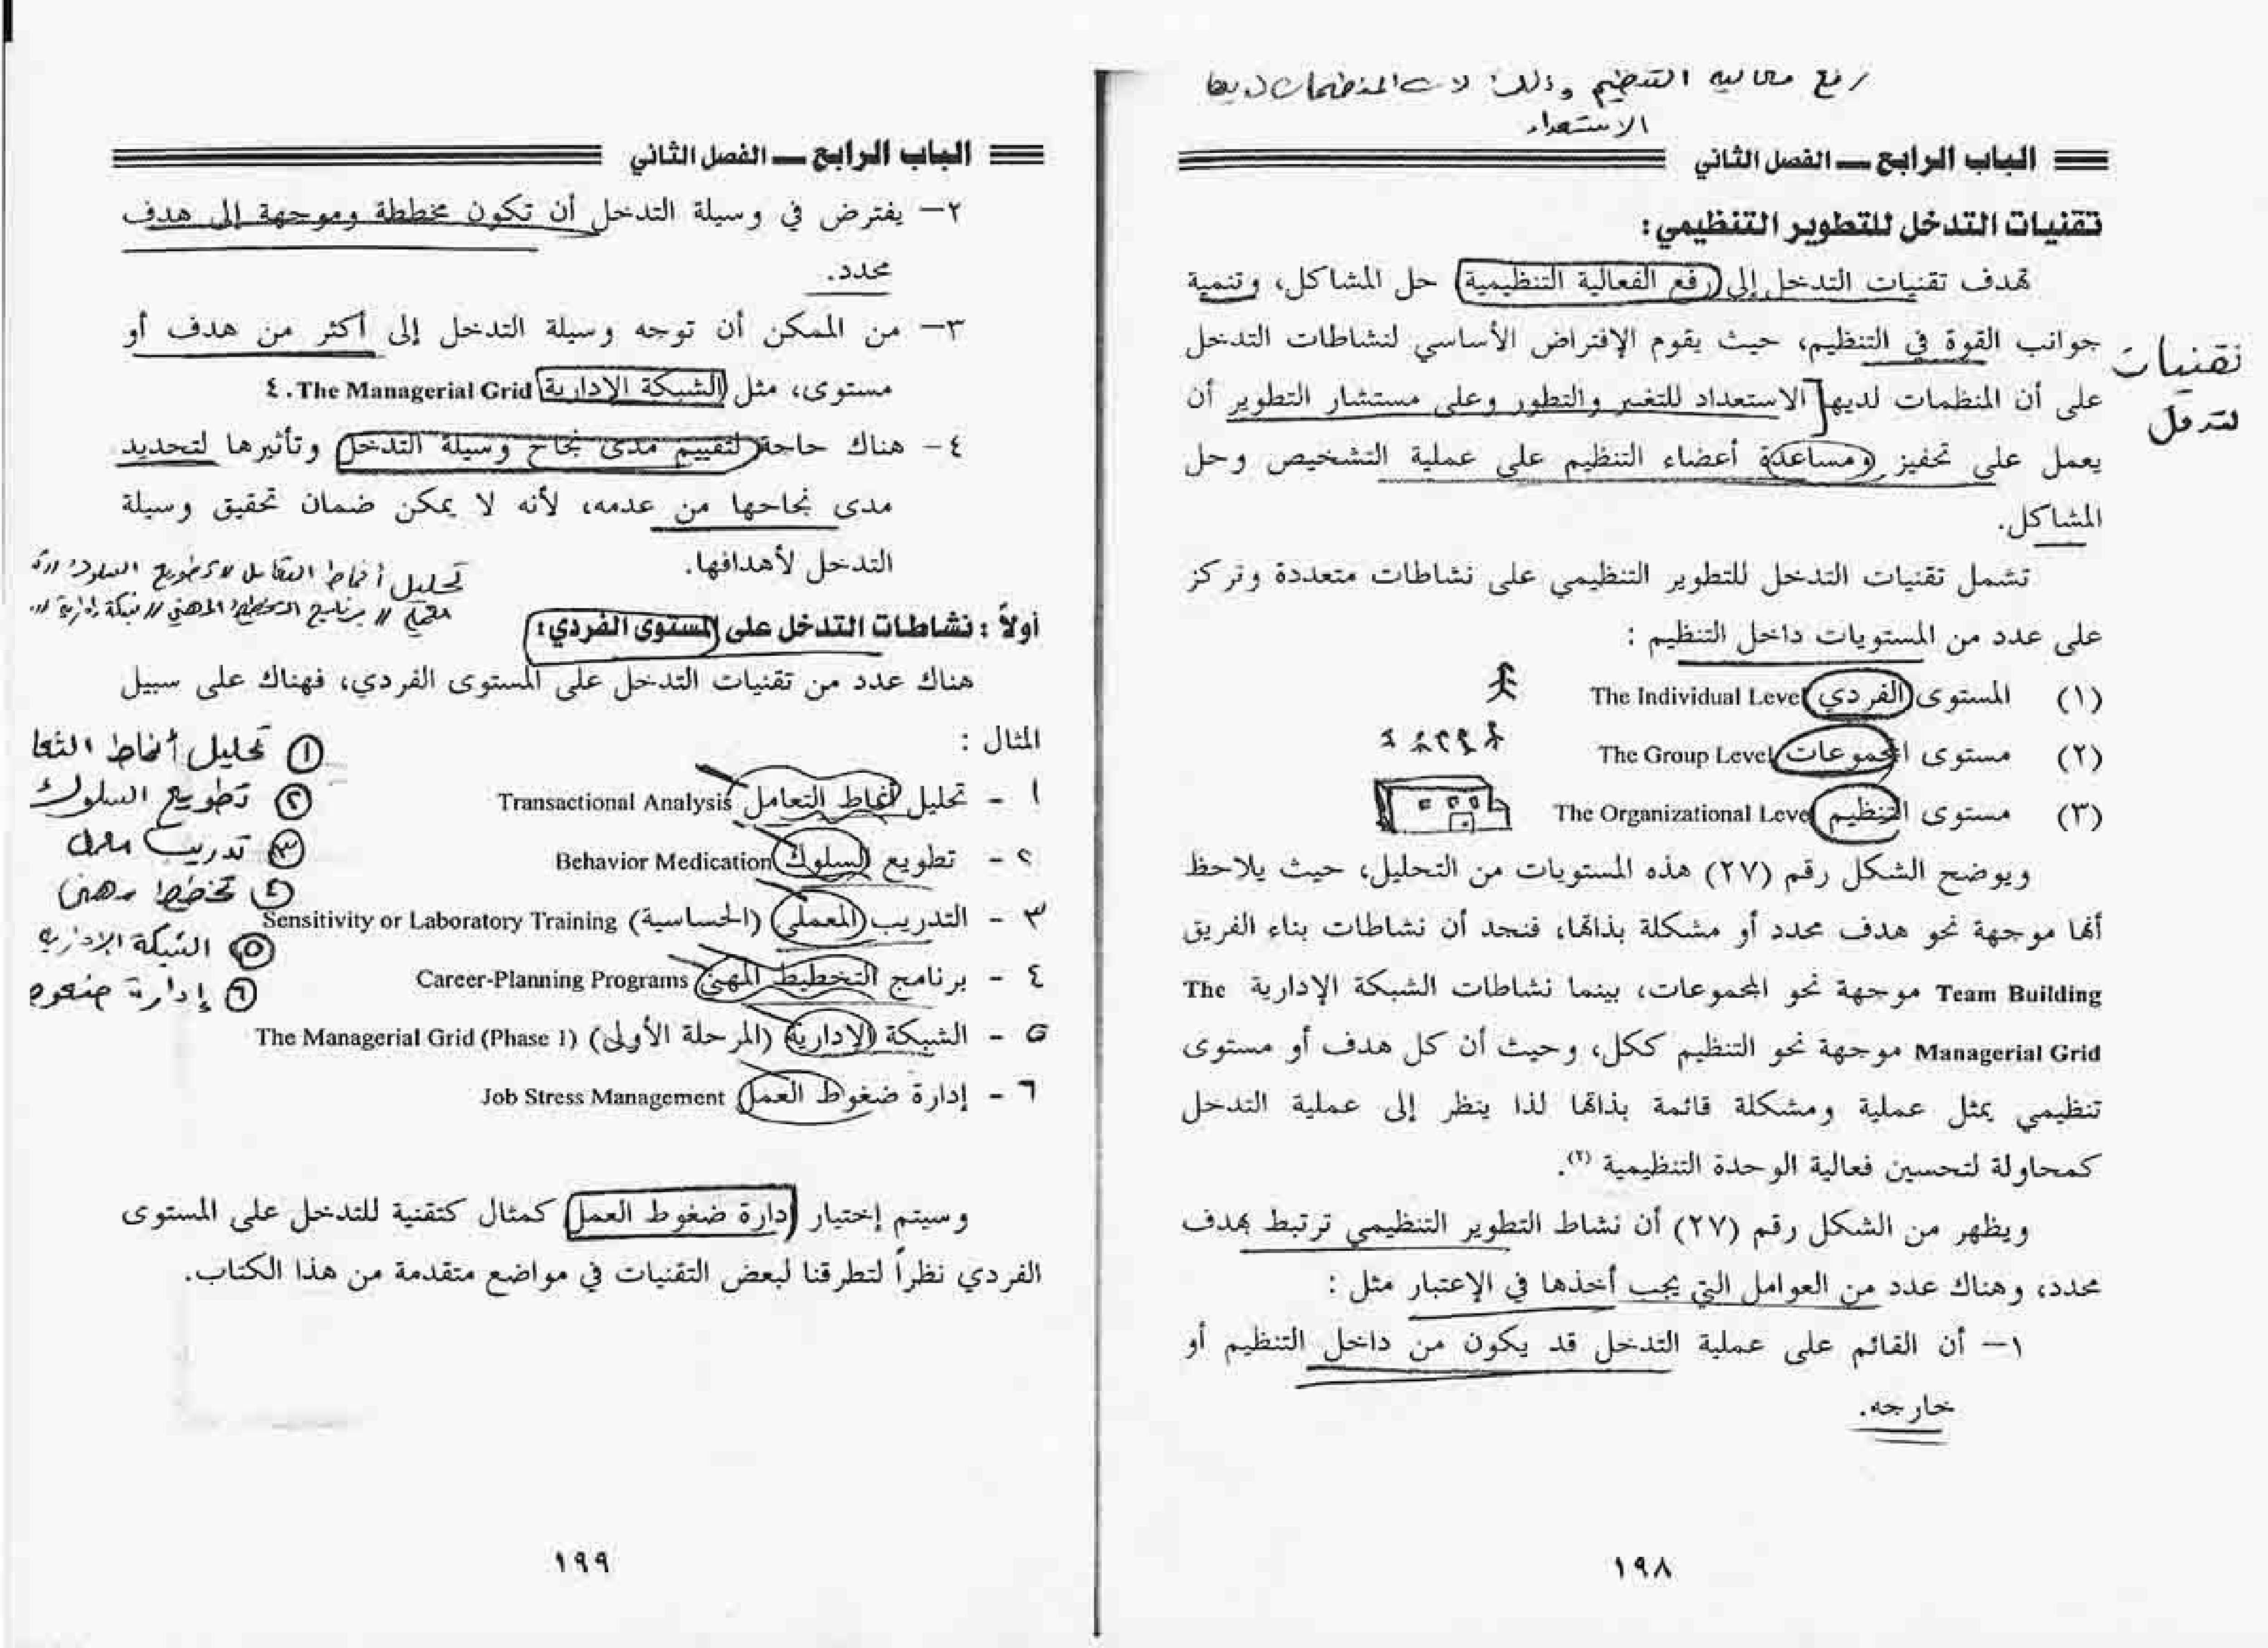 رفع فعالية التنظيم وذلك لأن المنظمات لديها
الاستعداد
الباب الرابع ــ الفصل الثاني
تقنيات التدخل للتطوير التنظيمي:
تهدف تقنيات التدخل إلى رفع الفعالية التنظيمية حل المشاكل، وتنمية
جوانب القوة في التنظيم، حيث يقوم الإفتراض الأساسي لنشاطات التدخل
على أن المنظمات لديها الاستعداد للتغير والتطور وعلى مستشار التطوير أن
يعمل على تحفيز ومساعدة أعضاء التنظيم على عملية التشخيص وحل
المشاكل.
تقنيات
تشمل تقنيات التدخل للتطوير التنظيمي على نشاطات متعددة وتركز
على عدد من المستويات داخل التنظيم :
(١) المستوى الفردي The Individual Level
(٢) مستوى المجموعات The Group Level
(٣) مستوى التنظيم The Organizational Level
ويوضح الشكل رقم (٢٧) هذه المستويات من التحليل، حيث يلاحظ
أنها موجهة نحو هدف محدد أو مشكلة بذاتها، فنجد أن نشاطات بناء الفريق
Team Building موجهة نحو المجموعات، بينما نشاطات الشبكة الإدارية The
Managerial Grid موجهة نحو التنظيم ككل، وحيث أن كل هدف أو مستوى
تنظيمي يمثل عملية ومشكلة قائمة بذاتها لذا ينظر إلى عملية التدخل
كمحاولة لتحسين فعالية الوحدة التنظيمية (٢).
ويظهر من الشكل رقم (٢٧) أن نشاط التطوير التنظيمي ترتبط بهدف
محدد، وهناك عدد من العوامل التي يجب أخذها في الإعتبار مثل :
١– أن القائم على عملية التدخل قد يكون من داخل التنظيم أو
خارجه.
١٩٨
الباب الرابع ــ الفصل الثاني
٢– يفترض في وسيلة التدخل أن تكون مخططة وموجهة إلى هدف
محدد.
٣– من الممكن أن توجه وسيلة التدخل إلى أكثر من هدف أو
مستوى، مثل الشبكة الإدارية The Managerial Grid .٤
٤– هناك حاجة لتقييم مدى نجاح وسيلة التدخل وتأثيرها لتحديد
مدى نجاحها من عدمه، لأنه لا يمكن ضمان تحقيق وسيلة
التدخل لأهدافها.
تحليل أنماط التعامل تطويع السلوك
برنامج التخطيط المهني // شبكة إدارية
أولاً : نشاطات التدخل على المستوى الفردي:
هناك عدد من تقنيات التدخل على المستوى الفردي، فهناك على سبيل
المثال :
١ - تحليل أنماط التعامل Transactional Analysis
٢ - تطويع السلوك Behavior Medication
٣ - التدريب المعملي (الحساسية) Sensitivity or Laboratory Training
٤ - برنامج التخطيط المهني Career-Planning Programs
٥ - الشبكة الإدارية (المرحلة الأولى) The Managerial Grid (Phase 1)
٦ - إدارة ضغوط العمل Job Stress Management
① تحليل أنماط التعا
② تطويع السلوك
③ تدريب
④ تخطيط مهني
⑤ الشبكة الإدارية
⑥ إدارة ضغوط
وسيتم إختيار إدارة ضغوط العمل كمثال كتقنية للتدخل على المستوى
الفردي نظراً لتطرقنا لبعض التقنيات في مواضع متقدمة من هذا الكتاب.
١٩٩